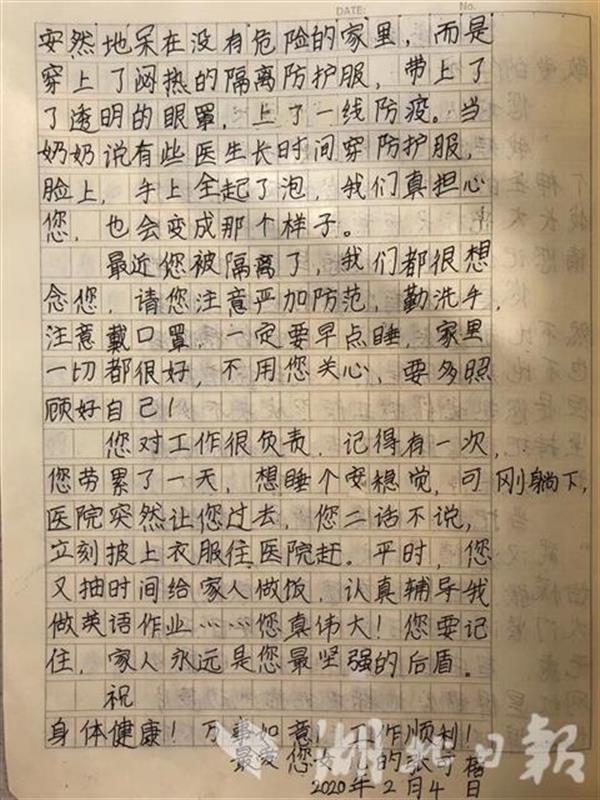 DATE:
No.
安然地呆在没有危险的家里，而是
穿上了闷热的隔离防护服，带上了
了透明的眼罩，上了一线防疫。当
奶奶说有些医生长时间穿防护服，
脸上，手上全起了泡，我们真担心
您，也会变成那个样子。
最近您被隔离了，我们都很想
念您，请您注意严加防范，勤洗手，
注意戴口罩，一定要早点睡，家里
一切都很好，不用您关心，要多照
顾好自己！
您对工作很负责，记得有一次，
您劳累了一天，想睡个安稳觉，可刚躺下，
医院突然让您过去，您二话不说，
立刻披上衣服住医院赶。平时，您
又抽时间给家人做饭，认真辅导我
做英语作业……您真伟大！您要记
住，家人永远是您最坚强的后盾。
祝
身体健康！万事如意！工作顺利！
最爱您
2020年2月4日
湖北日報